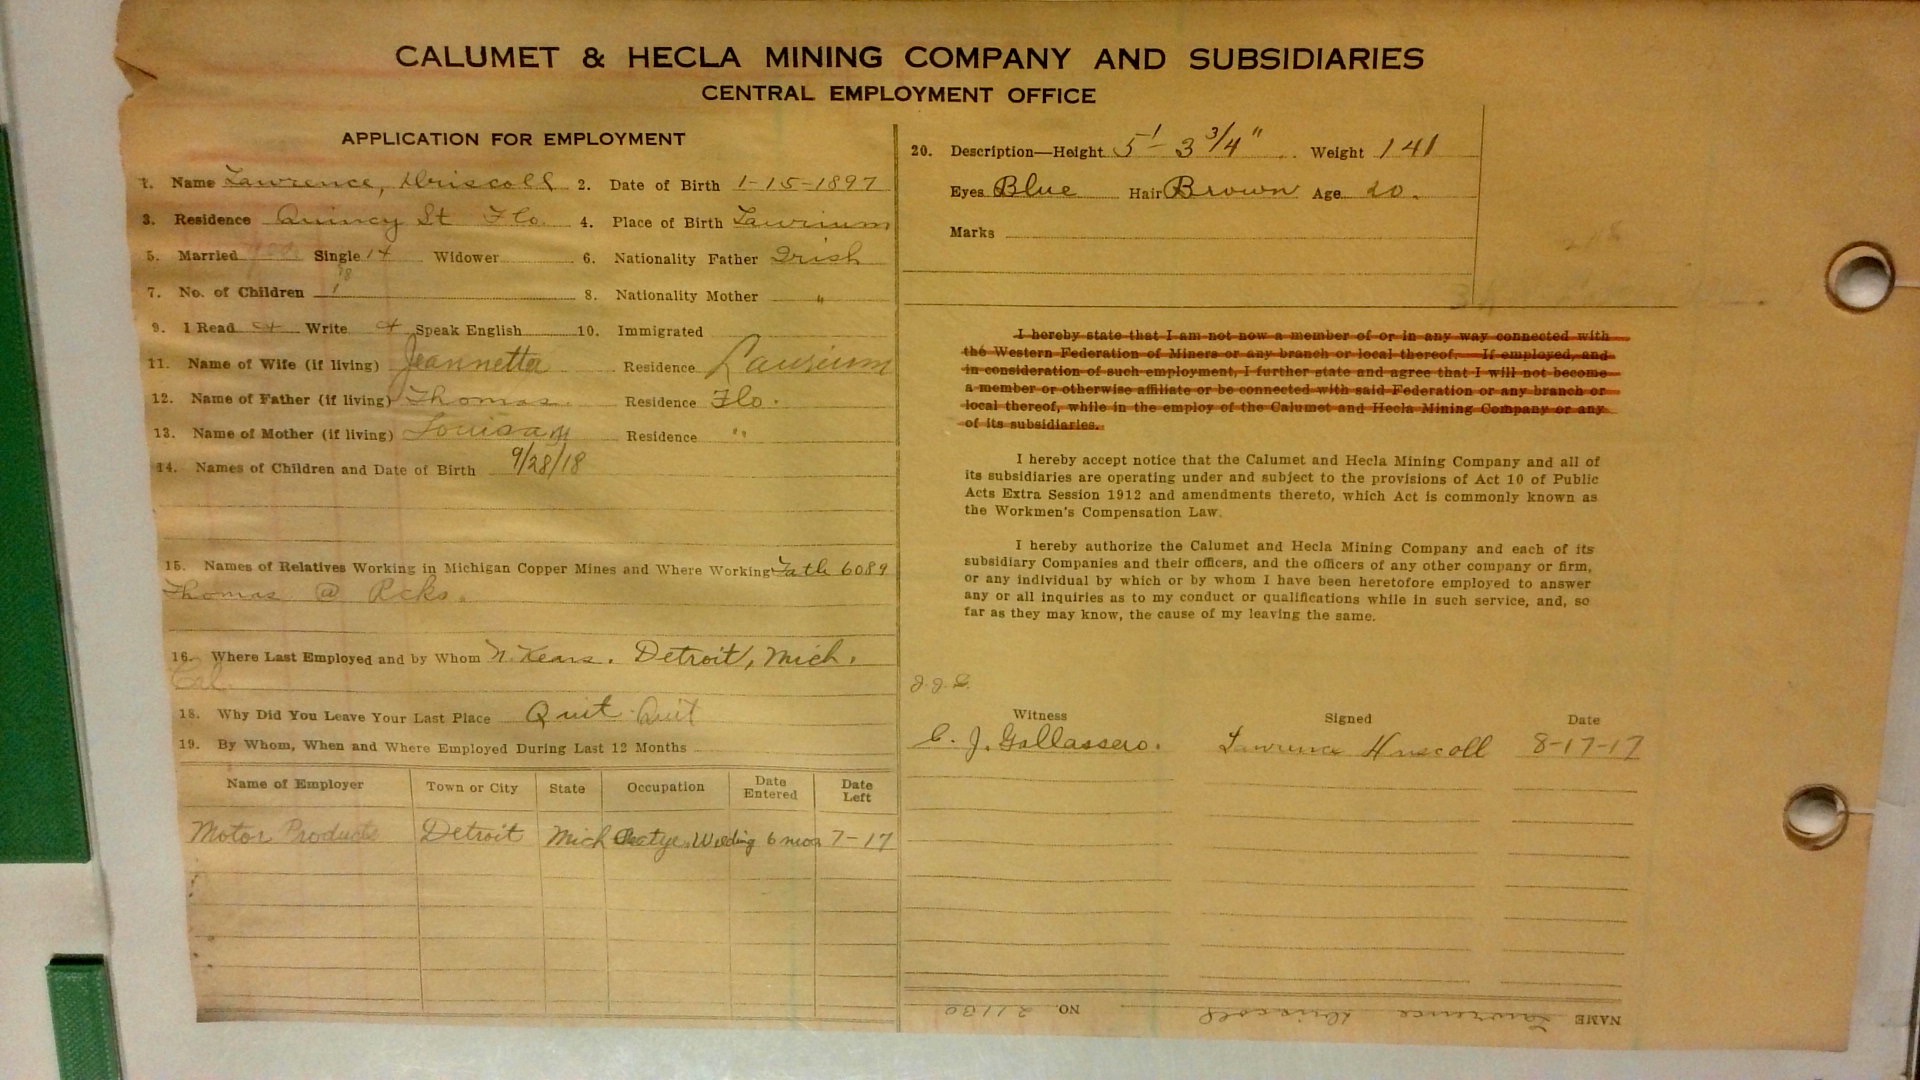 CALUMET & HECLA MINING COMPANY AND SUBSIDIARIES
CENTRAL EMPLOYMENT OFFICE
APPLICATION FOR EMPLOYMENT
1. Name Lawrence, Driscoll 2. Date of Birth 1-15-1897
3. Residence Quincy St Flo. 4. Place of Birth Laurium
5. Married Single Widower 6. Nationality Father Irish
7. No. of Children 1 8. Nationality Mother "
9. I Read Write Speak English 10. Immigrated
11. Name of Wife (if living) Jeannetta Residence Laurium
12. Name of Father (if living) Thomas Residence Flo.
13. Name of Mother (if living) Louisa Residence "
14. Names of Children and Date of Birth 9/28/18
15. Names of Relatives Working in Michigan Copper Mines and Where Working Fath 6089
Thomas @ Rcks.
16. Where Last Employed and by Whom N. Kears. Detroit, Mich.
Cal.
18. Why Did You Leave Your Last Place Quit Quit
19. By Whom, When and Where Employed During Last 12 Months
Name of Employer Town or City State Occupation Date Entered Date Left
Motor Products Detroit Mich Welding 6 mos 7-17
20. Description—Height 5'-3 3/4" Weight 141
Eyes Blue Hair Brown Age 20.
Marks
I hereby state that I am not now a member of or in any way connected with
the Western Federation of Miners or any branch or local thereof. If employed, and
in consideration of such employment, I further state and agree that I will not become
a member or otherwise affiliate or be connected with said Federation or any branch or
local thereof, while in the employ of the Calumet and Hecla Mining Company or any
of its subsidiaries.
I hereby accept notice that the Calumet and Hecla Mining Company and all of
its subsidiaries are operating under and subject to the provisions of Act 10 of Public
Acts Extra Session 1912 and amendments thereto, which Act is commonly known as
the Workmen's Compensation Law.
I hereby authorize the Calumet and Hecla Mining Company and each of its
subsidiary Companies and their officers, and the officers of any other company or firm,
or any individual by which or by whom I have been heretofore employed to answer
any or all inquiries as to my conduct or qualifications while in such service, and, so
far as they may know, the cause of my leaving the same.
J.J.S.
Witness Signed Date
C. J. Gallassero. Lawrence Driscoll 8-17-17
NAME Lawrence Driscoll NO. 21130